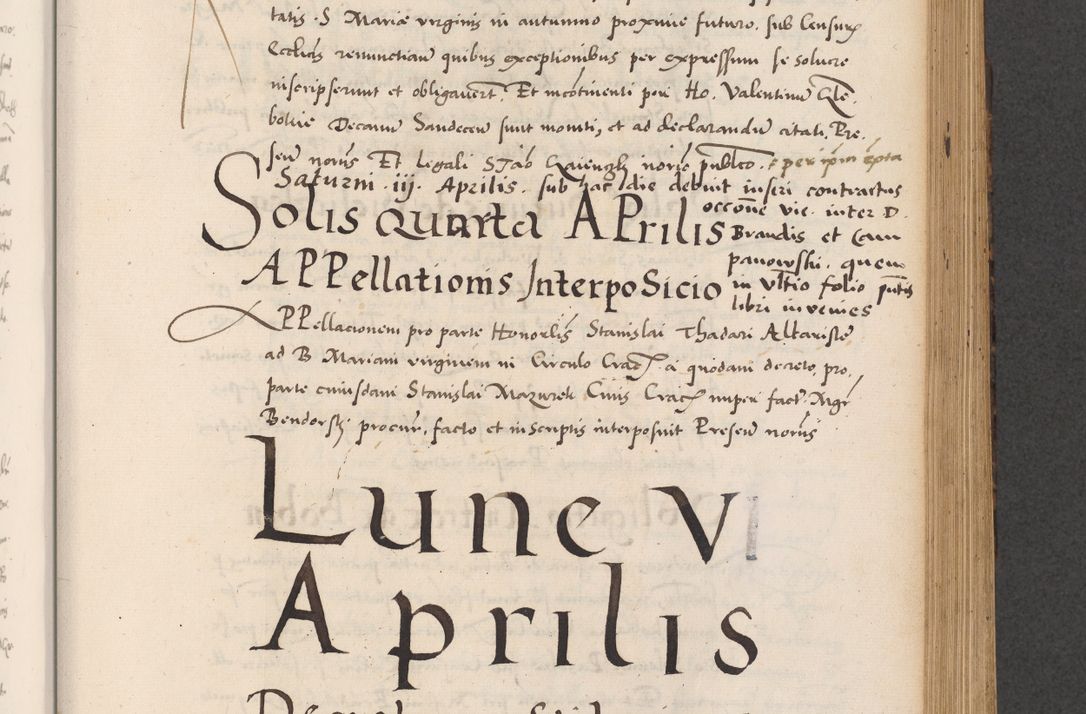 tatis . S Mariæ virginis in autumno proxime futuro, sub Censur
Ecclicis renunctiaũ quibus exceptionibus per expressum se soluere
inscripserunt et obligauert. Et incotinenti per Ho. Valentinũ
bokie Decanũ Sandeceñ sunt moniti, et ad declarandũ citati. Pre.
señ noriis Et legali norie publico.
Saturni . iij . Aprilis . sub hac die debuit inseri contractus
occõne vie. inter D.
Brandis et Cam
panowski . quem
in vltio folio
libri inuenies
Solis Quarta APrilis
APPellationis InterpoSicio
APPellacionem pro parte Honorlis Stanislai Thadari Altariste
ad B Mariam virginem in Circulo Crac. a quodam decreto, pro,
parte cuiusdam Stanislai Mazurek Ciuis Crac nuper fact. Mgr
Bendorsky procur, facto et in scriptis interposuit Preseñ noriis
Lune V
Aprilis